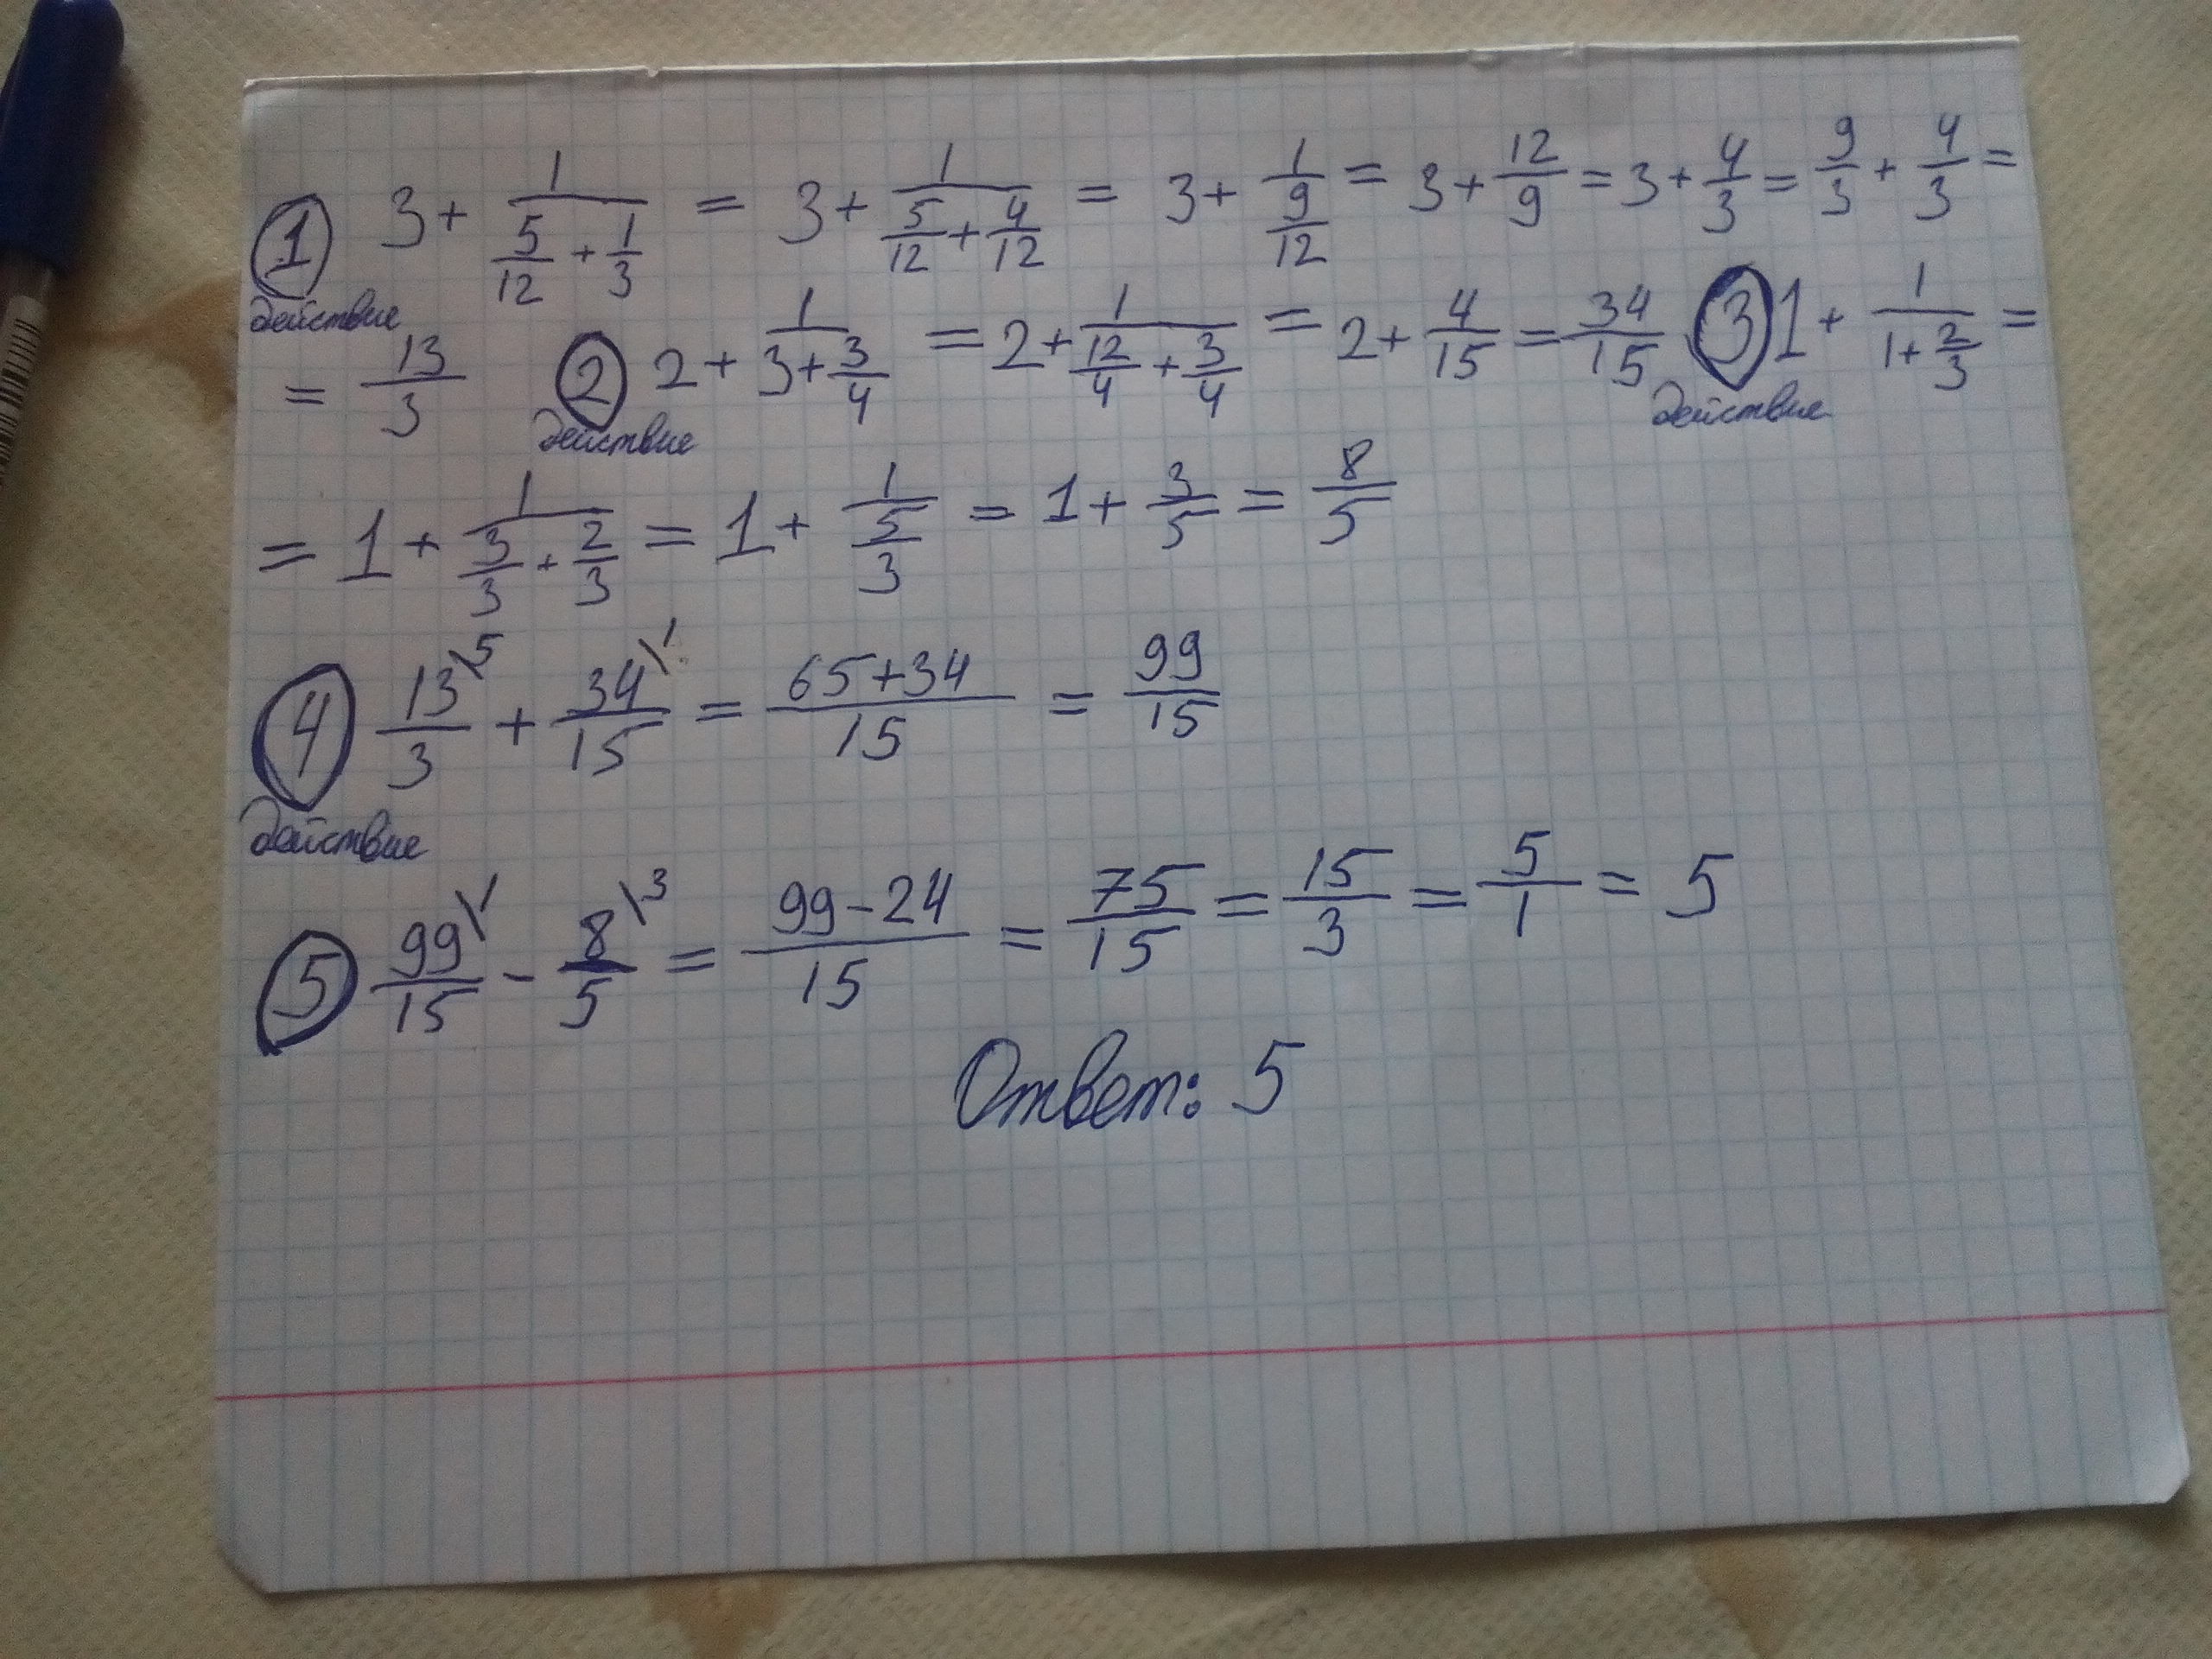 ① 3 + 1/(5/12 + 1/3) = 3 + 1/(5/12 + 4/12) = 3 + 1/(9/12) = 3 + 12/9 = 3 + 4/3 = 9/3 + 4/3 =
действие
= 13/3 ② 2 + 1/(3 + 3/4) = 2 + 1/(12/4 + 3/4) = 2 + 4/15 = 34/15 ③ 1 + 1/(1 + 2/3) =
действие действие
= 1 + 1/(3/3 + 2/3) = 1 + 1/(5/3) = 1 + 3/5 = 8/5
④ 13\5/3 + 34\1/15 = (65+34)/15 = 99/15
действие
⑤ 99\1/15 - 8\3/5 = (99-24)/15 = 75/15 = 15/3 = 5/1 = 5
Ответ: 5